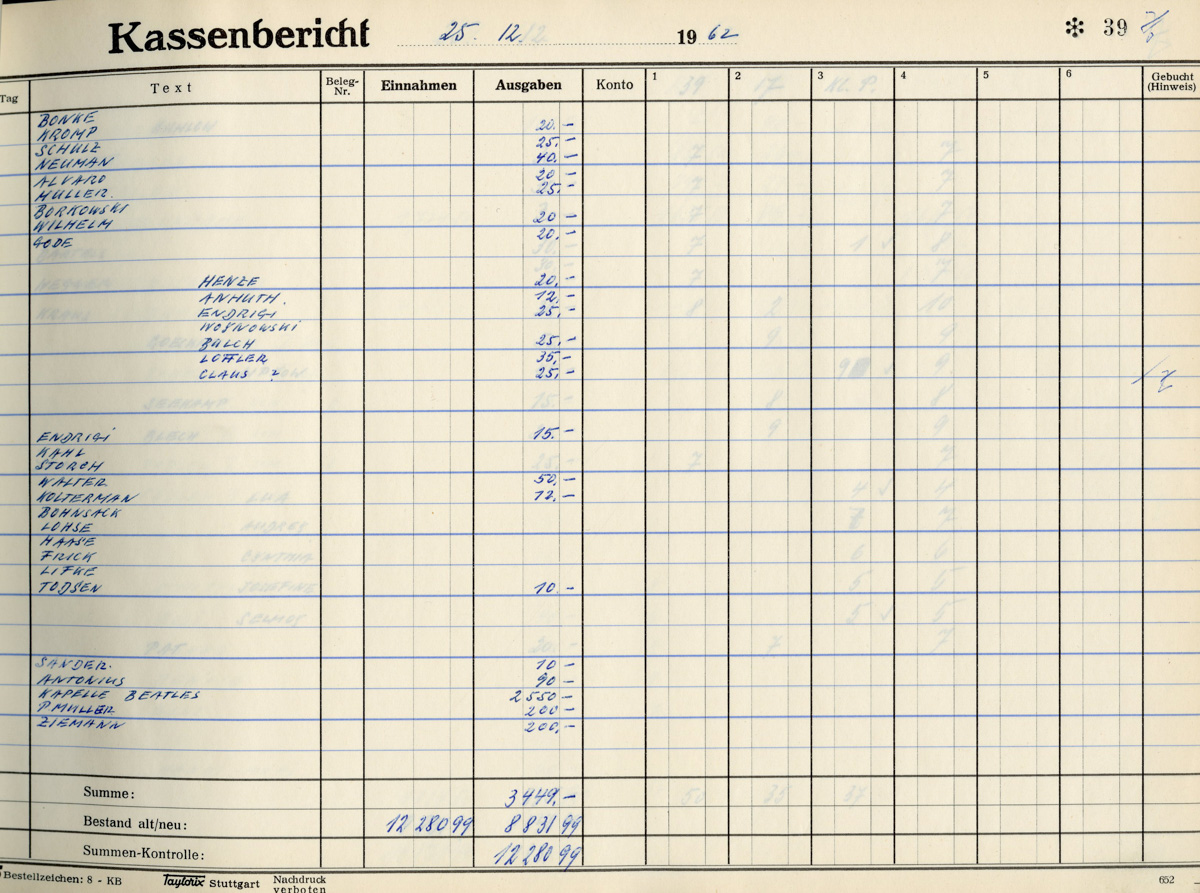 Kassenbericht 25. 12. 1962 ✻ 39
Tag Text Beleg-Nr. Einnahmen Ausgaben Konto 1 2 3 4 5 6 Gebucht (Hinweis)
BONKE 20.-
KROMP
SCHULZ 25.-
NEUMAN 40.-
ALVARO 20 -
MÜLLER. 25.-
BORKOWSKI
WILHELM 20 -
GODE 20.-
HENZE 20.-
ANHUTH. 12.-
ENDRIGI 25.-
WOSNOWSKI
BALCH 25.-
LÖFFLER 35.-
CLAUS ? 25.-
ENDRIGI 15.-
KAHL
STORCH
WALTER 50.-
KOLTERMAN 12.-
BOHNSACK
LOHSE
HAASE
FRICK
LIFKE
TODSEN 10.-
SANDER. 10 -
ANTONIUS 90 -
KAPELLE BEATLES 2550 -
P MÜLLER 200 -
ZIEMANN 200,-
Summe: 3449.-
Bestand alt/neu: 12 280 99 8831 99
Summen-Kontrolle: 12280 99
Bestellzeichen: 8 - KB Taylorix Stuttgart Nachdruck verboten 652